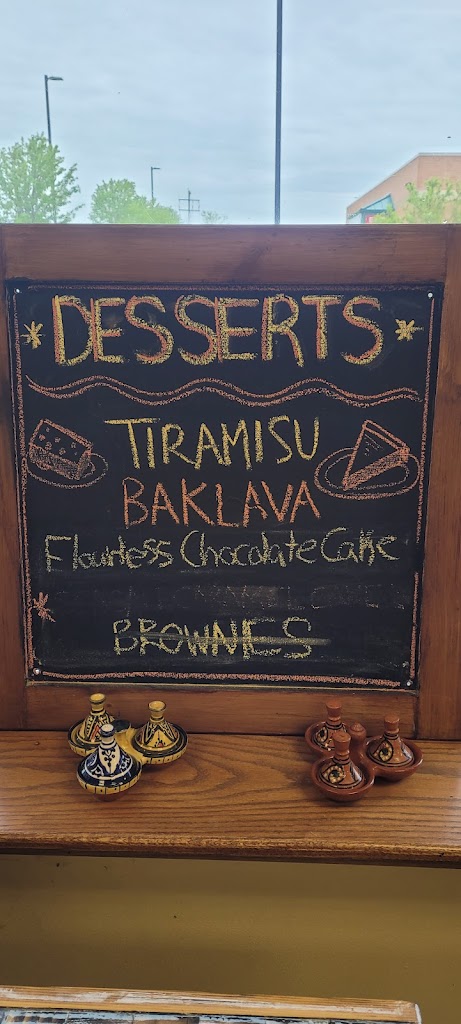 DESSERTS
TIRAMISU
BAKLAVA
Flourless Chocolate Cake
BROWNIES